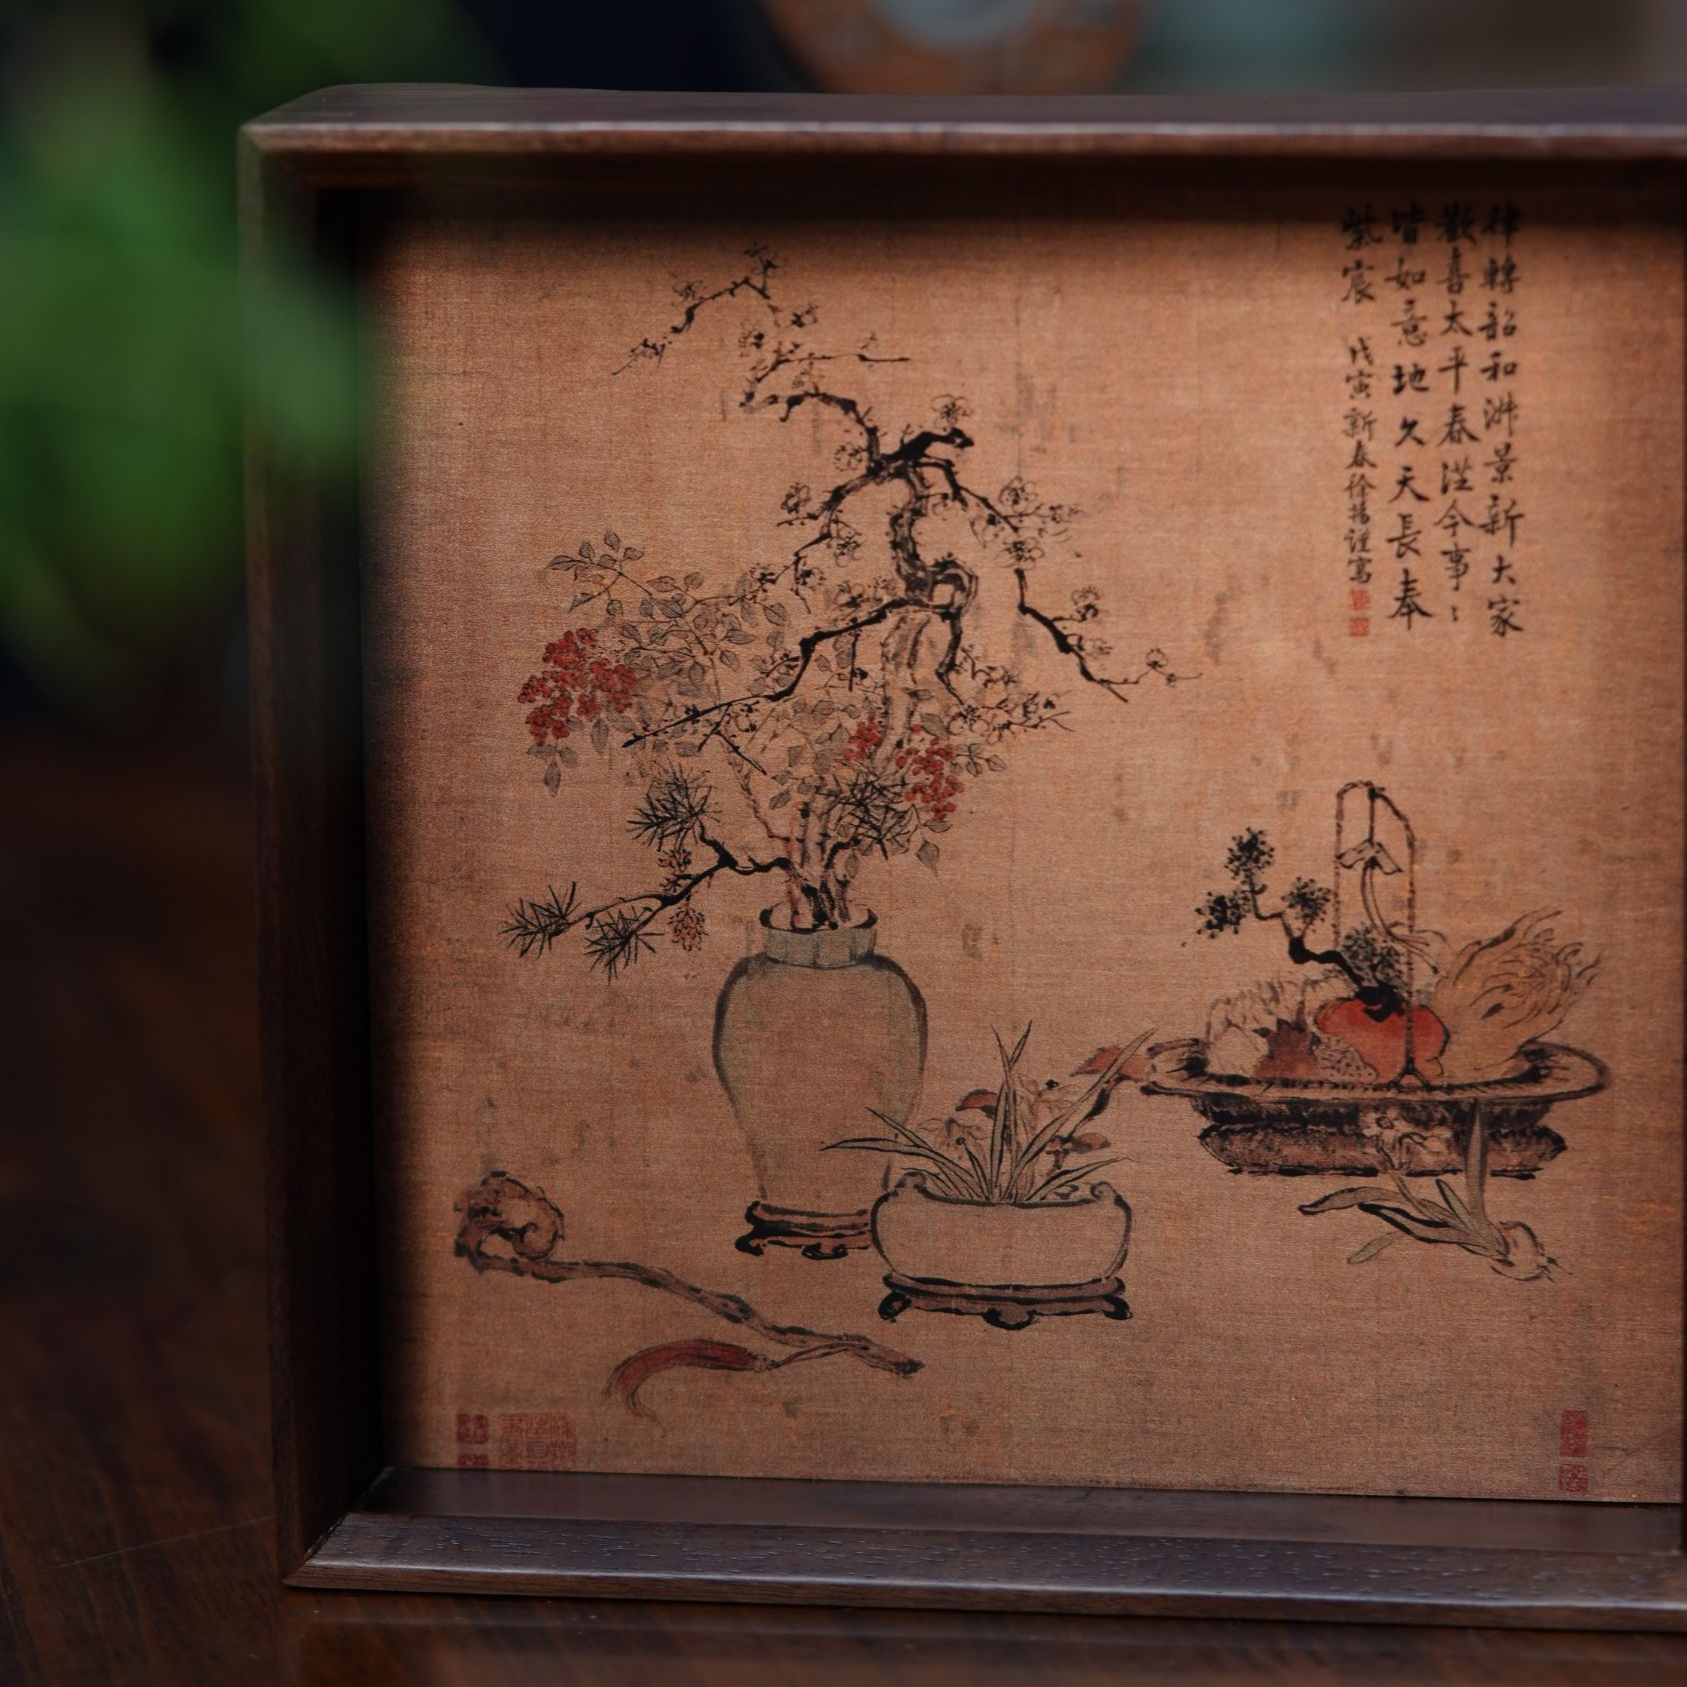 律轉韶和淑景新大家
歡喜太平春從今事〻
皆如意地久天長奉
紫宸 戊寅新春徐揚謹寫